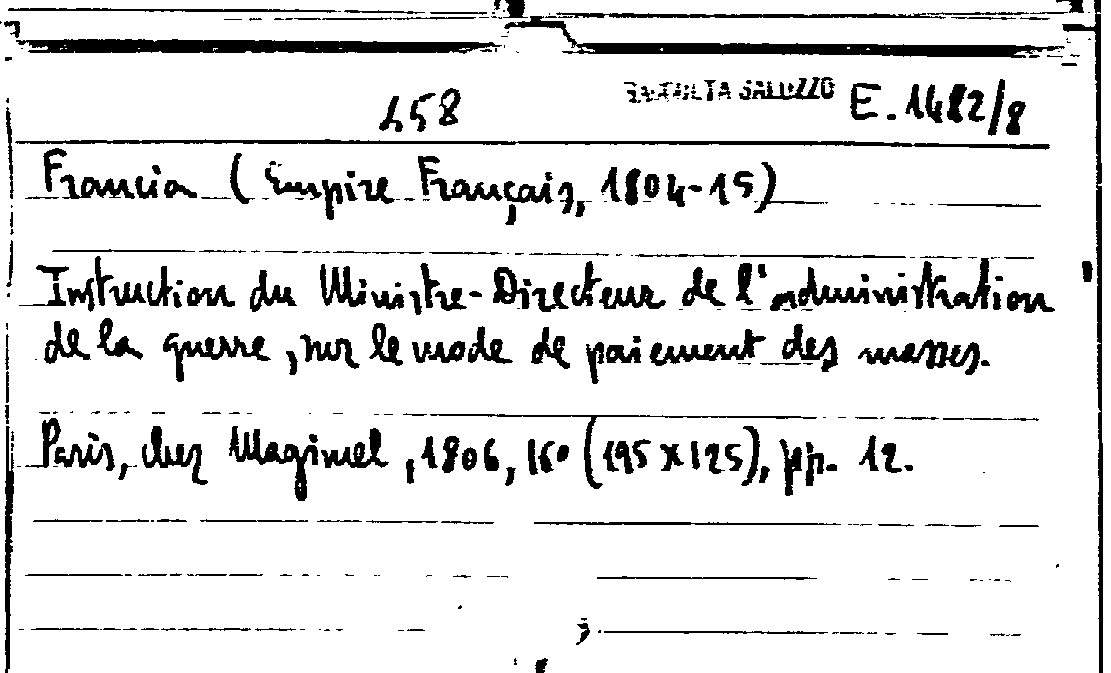 458 RACCOLTA SALUZZO E.1482/8
Francia (Empire Français, 1804-15)
Instruction du Ministre-Directeur de l'administration
de la guerre, sur le mode de paiement des masses.
Paris, chez Magimel, 1806, 16º (195 x 125), pp. 12.